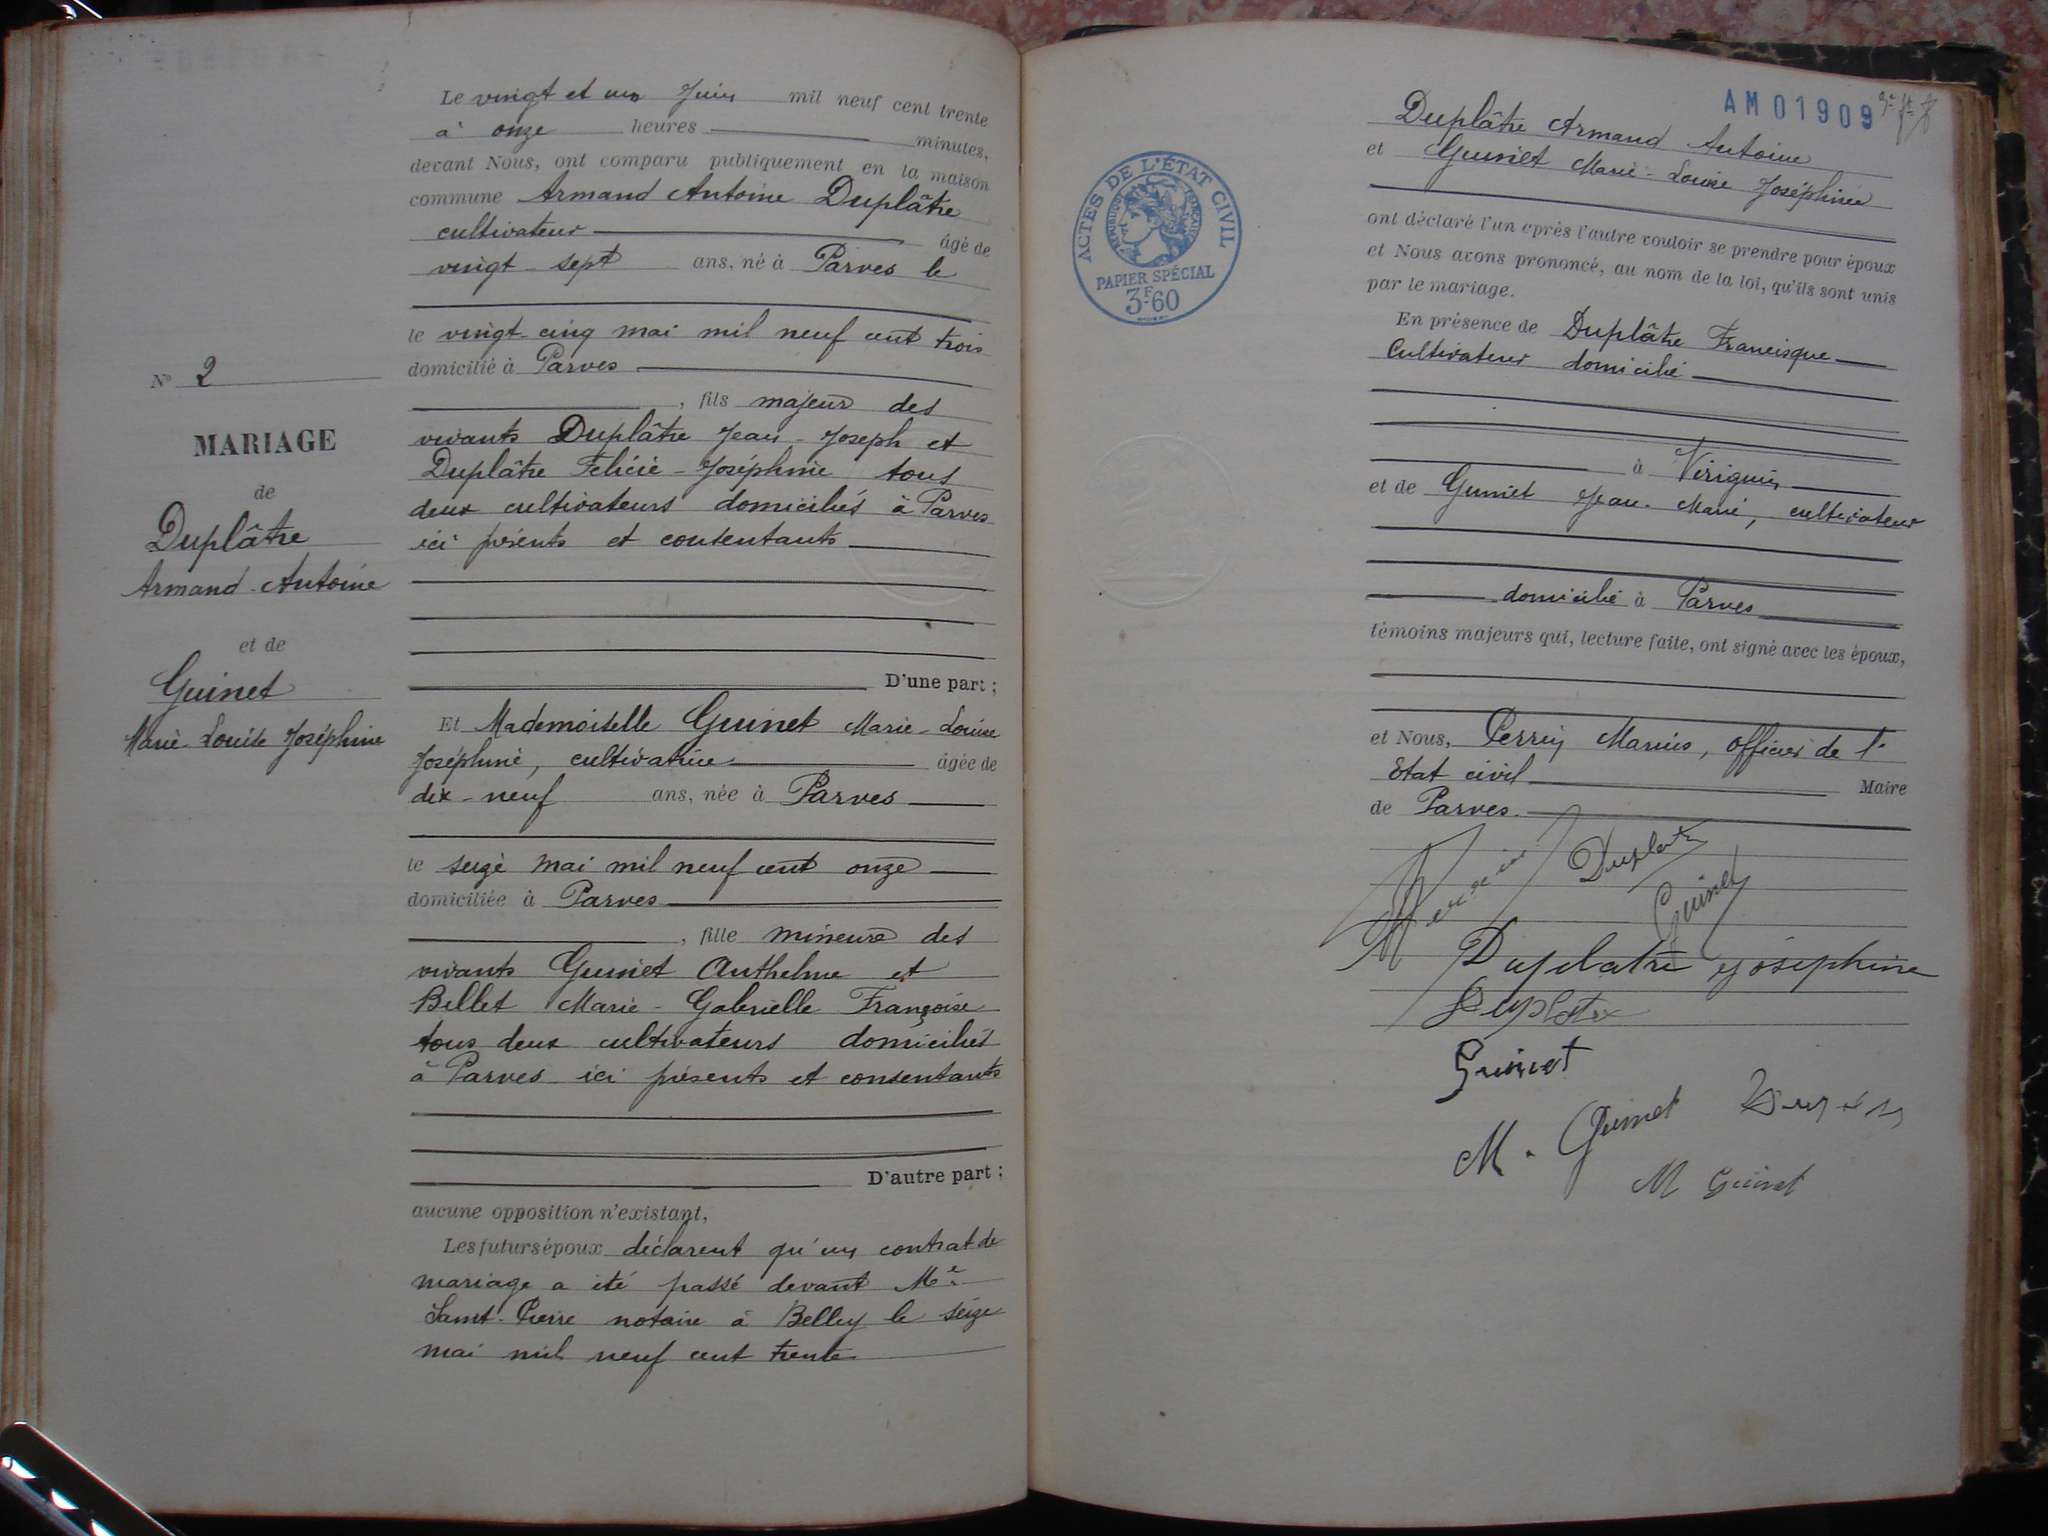 Le vingt et un Juin mil neuf cent trente
à onze heures minutes,
devant Nous, ont comparu publiquement en la maison
commune Armand Antoine Duplâtre
cultivateur âgé de
vingt-sept ans, né à Parves le
le vingt-cinq mai mil neuf cent trois
domicilié à Parves
, fils majeur des
vivants Duplâtre Jean-Joseph et
Duplâtre Félicie-Joséphine tous
deux cultivateurs domiciliés à Parves
ici présents et consentants
D'une part ;
Et Mademoiselle Guinet Marie-Louise
Joséphine, cultivatrice âgée de
dix-neuf ans, née à Parves
le seize mai mil neuf cent onze
domiciliée à Parves
, fille mineure des
vivants Guinet Anthelme et
Billet Marie-Gabrielle Françoise
tous deux cultivateurs domiciliés
à Parves ici présents et consentants
D'autre part ;
aucune opposition n'existant,
Les futurs époux déclarent qu'un contrat de
mariage a été passé devant Me
Saint-Pierre notaire à Belley le seize
mai mil neuf cent trente
No 2
MARIAGE
de
Duplâtre
Armand-Antoine
et de
Guinet
Marie-Louise Joséphine
AM01909
ACTES DE L'ÉTAT CIVIL
RÉPUBLIQUE FRANÇAISE
PAPIER SPÉCIAL
3F60
Duplâtre Armand Antoine
et Guinet Marie-Louise Joséphine
ont déclaré l'un après l'autre vouloir se prendre pour époux
et Nous avons prononcé, au nom de la loi, qu'ils sont unis
par le mariage.
En présence de Duplâtre Francisque
Cultivateur domicilié
à Virignin
et de Guinet Jean-Marie, cultivateur
domicilié à Parves
témoins majeurs qui, lecture faite, ont signé avec les époux,
et Nous, Perrin Marius, officier de l'
Etat civil Maire
de Parves.
Duplatre
Guinet
Duplatre Joséphine
Duplatre
Guinet
M. Guinet
M Guinet